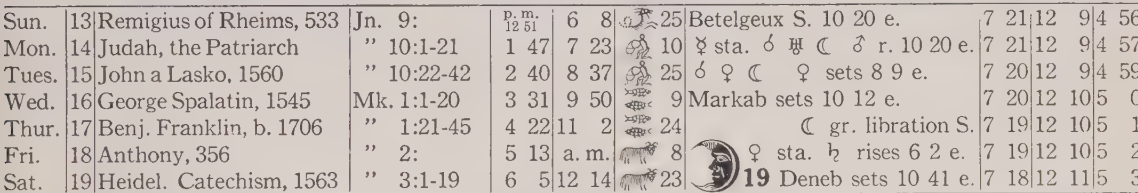 Sun. 13 Remigius of Rheims, 533 Jn. 9: p. m. 12 51 6 8 25 Betelgeux S. 10 20 e. 7 21 12 9 4 56
Mon. 14 Judah, the Patriarch " 10:1-21 1 47 7 23 10 ☿ sta. ☌ ♅ ☾ ♂ r. 10 20 e. 7 21 12 9 4 57
Tues. 15 John a Lasko, 1560 " 10:22-42 2 40 8 37 25 ☌ ♀ ☾ ♀ sets 8 9 e. 7 20 12 9 4 59
Wed. 16 George Spalatin, 1545 Mk. 1:1-20 3 31 9 50 9 Markab sets 10 12 e. 7 20 12 10 5 0
Thur. 17 Benj. Franklin, b. 1706 " 1:21-45 4 22 11 2 24 ☾ gr. libration S. 7 19 12 10 5 1
Fri. 18 Anthony, 356 " 2: 5 13 a. m. 8 ♀ sta. ♄ rises 6 2 e. 7 19 12 10 5 2
Sat. 19 Heidel. Catechism, 1563 " 3:1-19 6 5 12 14 23 19 Deneb sets 10 41 e. 7 18 12 11 5 3